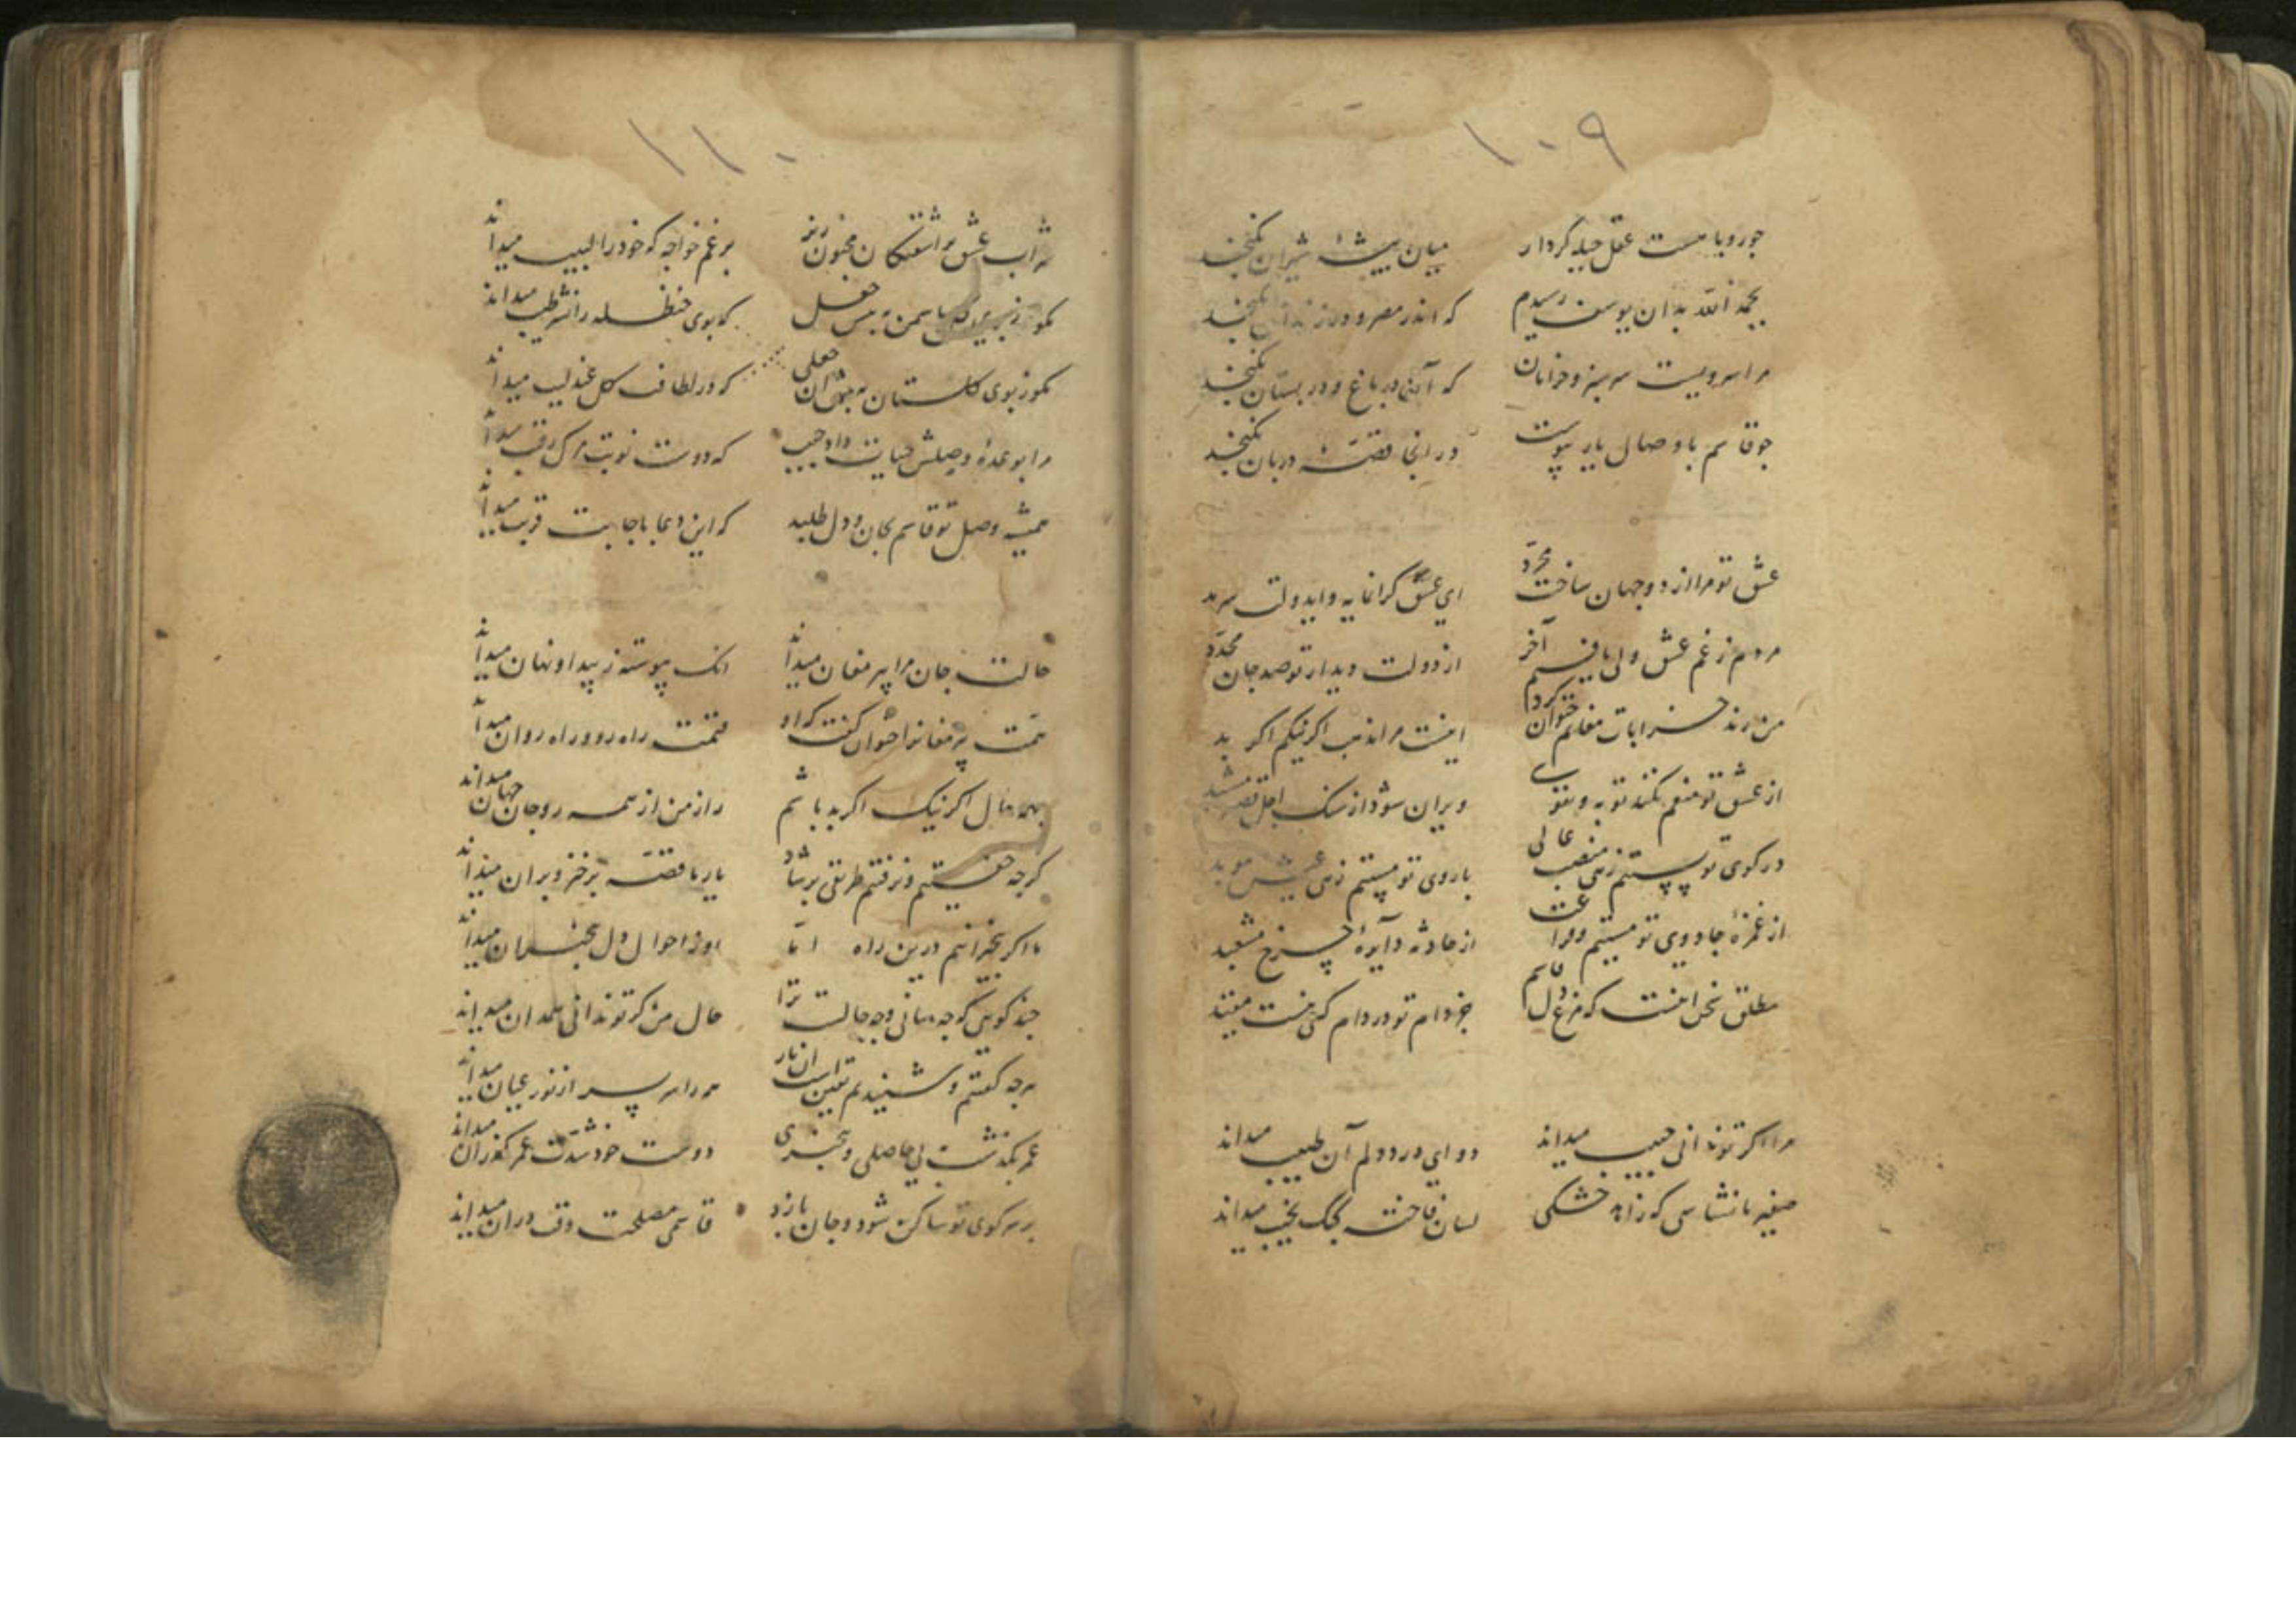 ۱۰۹
چو روباهست عقل حیله کردار میان بیشهٔ شیران نکنجد
بحمد الله بدان یوسف رسیدم که اندر مصر و در زندان نکنجد
مرا سرویست سرسبز و خرامان که آن در باغ و در بستان نکنجد
چو قاسم با وصال یار پیوست در انجا قصهٔ دربان نکنجد
عشق تو مرا از دو جهان ساخت مجرد ای عشق کرانمایه و ای دولت سرمد
مردم ز غم عشق ولی یافتم آخر از دولت دیدار تو صد جان مجدد
من رند خرابات مغانم خوان کرد اینست مرا مذهب اکر نیکم اکر بد
از عشق تو منعم نکند توبه و تقوی ویران شود از سنک اجل قصر مشید
در کوی تو پستیم زهی منصب عالی با روی تو مستیم زهی عیش موبد
از غمزهٔ جادوی تو مستیم از حادثه دایرهٔ چرخ مشعبد
مطلق سخن اینست که مرغ دل قاسم جز دام تو در دام کسی نیست مقید
مرا اکر تو ندانی حبیب میداند دوای درد دلم آن طبیب میداند
صفیر ما نشناسی که زاهد خشکی لسان فاخته میداند
۱۱۰
شراب عشق بر آشفتکان مجنون ریز برغم خواجه که خود را لبیب میداند
مکو که بوی حنظله را نشر طیب میداند
مکو ز بوی کلستان به پیش آن جعلی که در لطافت کل عندلیب میداند
مرا بوعدهٔ وصلش حیات داد حبیب که دوست نوبت مرک رقیب میداند
همیشه وصل تو قاسم بجان و دل طلبد که این دعا باجابت قریب میداند
حالت جان مرا پیر مغان میداند انک پیوسته ز پیدا و نهان میداند
همت پیر مغانرا خوان کفت که او قیمت راه رو و راه روان میداند
بهمه حال اکر نیک اکر بد باشم راز من از همه رو جان جهان میداند
کرچه خفتیم و نرفتیم طریقی برشاد یار ما قصه میداند
ما اکر بیخبرانیم درین راه اما او ز احوال دل بیخبران میداند
چند کویی که چه سانی و چه حالست ترا حال من کر تو ندانی همدان میداند
هرچه کفتم و شنیدم همه را سر بسر از نور عیان میداند
عمر بکذشت بی حاصلی و بیخبری دوست خود سرعت عمر کذران میداند
بر سر کوی تو ساکن شود و جان بازد قاسمی مصلحت وقت دران میداند